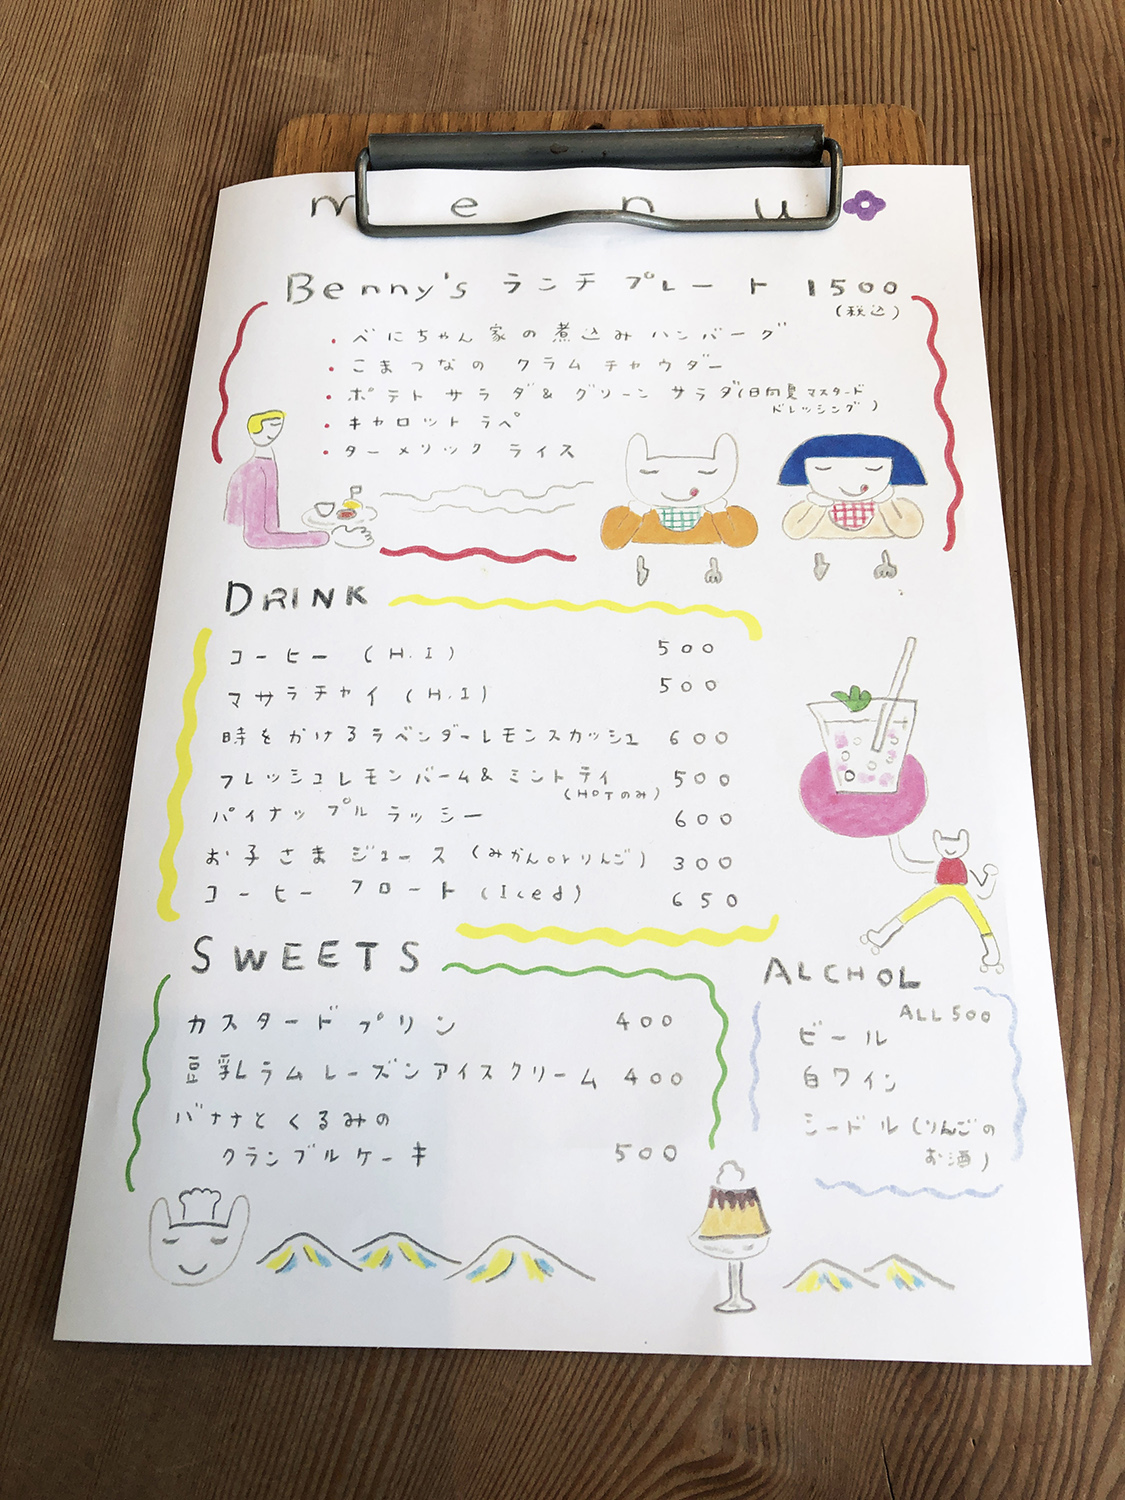 menu
Benny's ランチ プレート 1500
(税込)
・べにちゃん家の煮込みハンバーグ
・こまつなの クラムチャウダー
・ポテトサラダ&グリーンサラダ(日向夏マスタード
ドレッシング)
・キャロットラペ
・ターメリックライス
DRINK
コーヒー (H.I) 500
マサラチャイ (H.I) 500
時をかけるラベンダーレモンスカッシュ 600
フレッシュレモンバーム&ミントティ 500
(HOTのみ)
パイナップルラッシー 600
お子さまジュース (みかんorりんご) 300
コーヒーフロート (Iced) 650
SWEETS
カスタードプリン 400
豆乳ラムレーズンアイスクリーム 400
バナナとくるみの
クランブルケーキ 500
ALCHOL
ALL 500
ビール
白ワイン
シードル (りんごの
お酒)